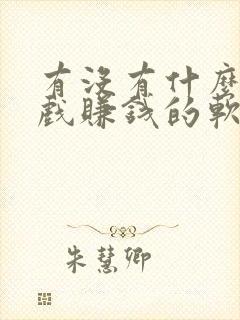 有沒有什麼
戲賺錢的軟
朱慧卿